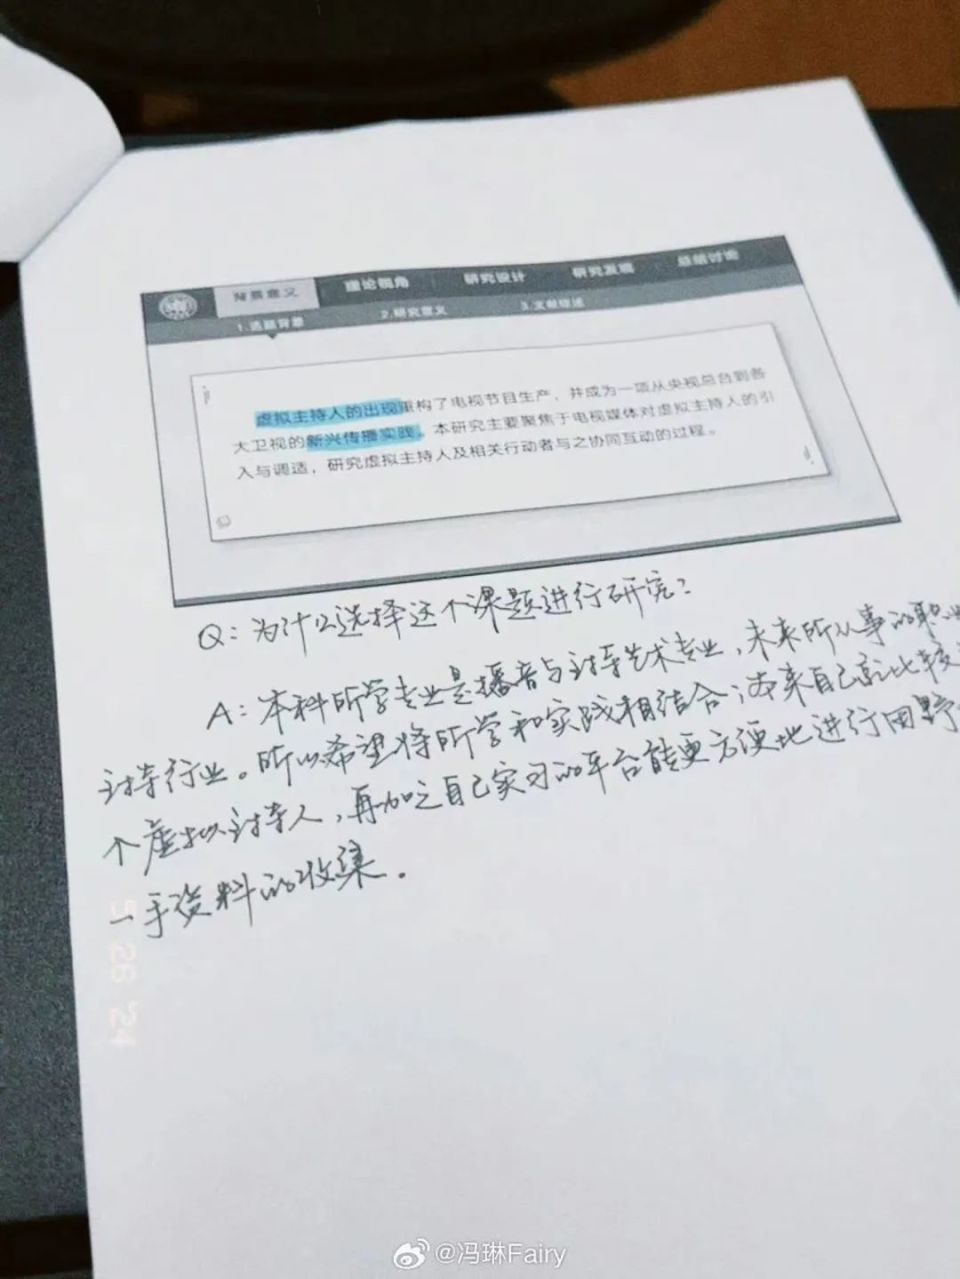 背景意义 理论视角 研究设计 研究发现 总结讨论
1.选题背景 2.研究意义 3.文献综述
虚拟主持人的出现重构了电视节目生产，并成为一项从央视总台到各
大卫视的新兴传播实践。本研究主要聚焦于电视媒体对虚拟主持人的引
入与调适，研究虚拟主持人及相关行动者与之协同互动的过程。
Q：为什么选择这个课题进行研究？
A：本科所学专业是播音与主持艺术专业，未来所从事的职业
主持行业。所以希望将所学和实践相结合；本来自己就比较
个虚拟主持人，再加之自己实习的平台能更方便地进行田野
一手资料的收集．
5 26 24
@冯琳Fairy